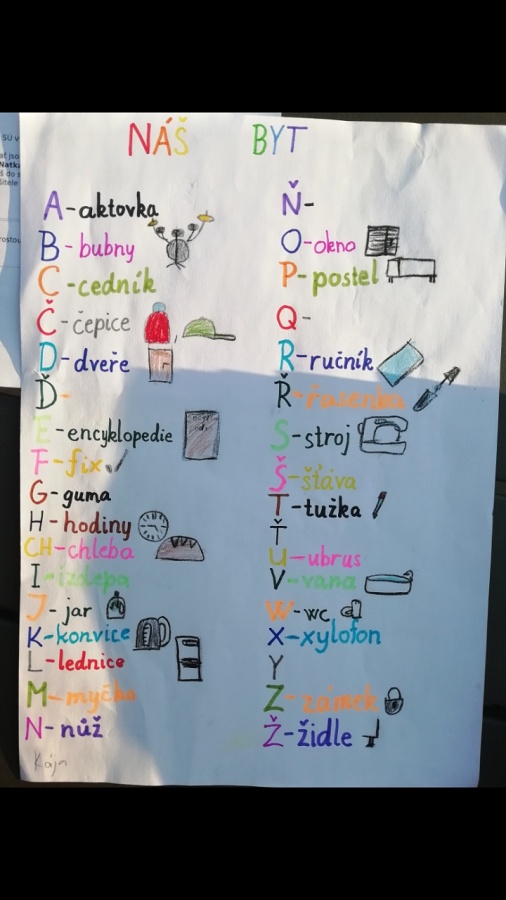 NÁŠ BYT
A-aktovka
B-bubny
C-cedník
Č-čepice
D-dveře
Ď-
E-encyklopedie
F-fix
G-guma
H-hodiny
CH-chleba
I-izolepa
J-jar
K-konvice
L-lednice
M-myčka
N-nůž
Kája
Ň-
O-okno
P-postel
Q-
R-ručník
Ř-řasenka
S-stroj
Š-šťáva
T-tužka
Ť
U-ubrus
V-vana
W-wc
X-xylofon
Y
Z-zámek
Ž-židle